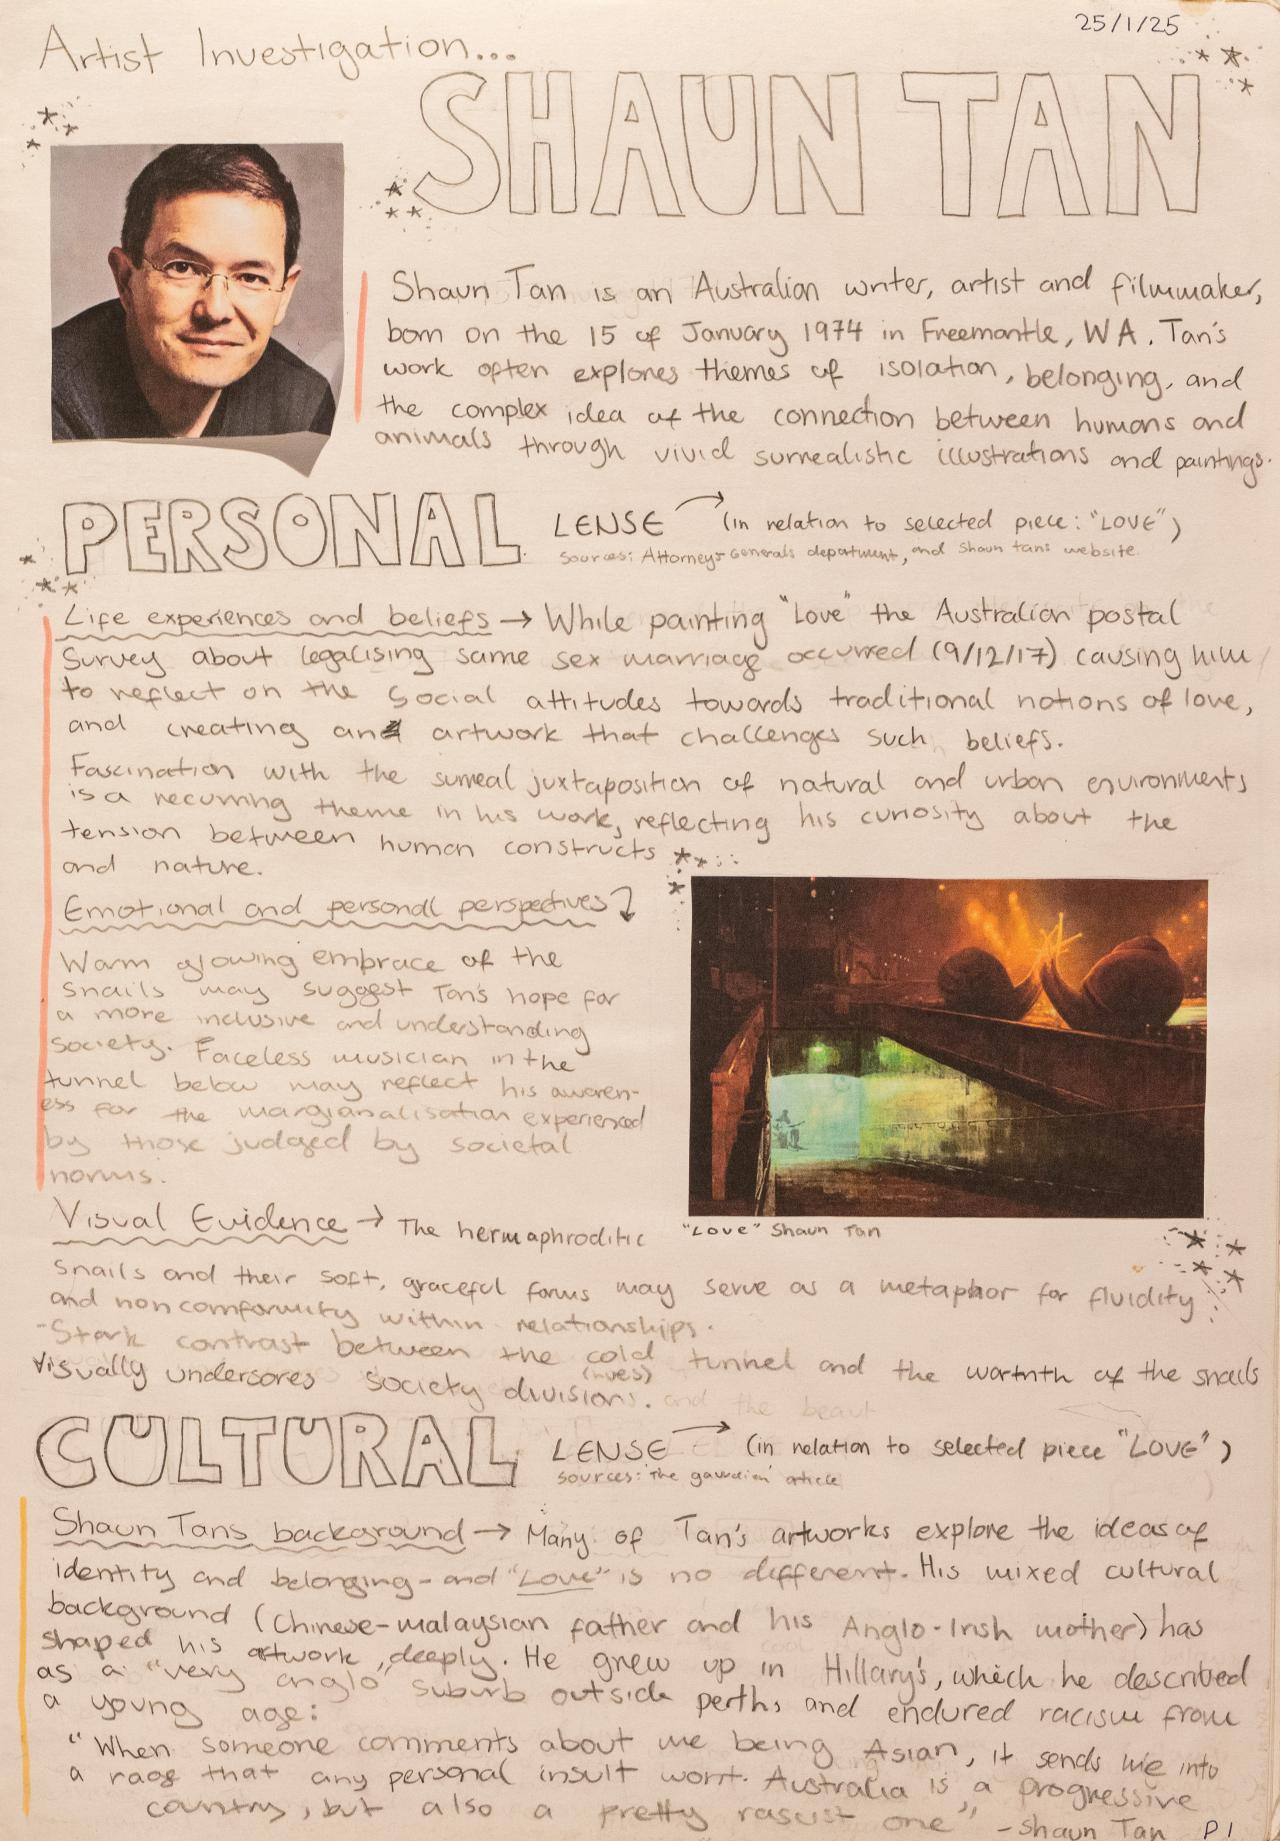 25/1/25
Artist Investigation...
SHAUN TAN
Shaun Tan is an Australian writer, artist and filmmaker,
born on the 15 of January 1974 in Freemantle, WA. Tan's
work often explores themes of isolation, belonging, and
the complex idea of the connection between humans and
animals through vivid surrealistic illustrations and paintings.
PERSONAL LENSE (in relation to selected piece: "LOVE")
Sources: Attorneys Generals department, and Shaun tans website
Life experiences and beliefs → While painting "Love" the Australian postal
survey about legalising same sex marriage occurred (9/12/17) causing him
to reflect on the social attitudes towards traditional notions of love,
and creating an artwork that challenges such beliefs.
Fascination with the surreal juxtaposition of natural and urban environments
is a recurring theme in his work, reflecting his curiosity about the
tension between human constructs
and nature.
Emotional and personal perspectives
Warm glowing embrace of the
snails may suggest Tan's hope for
a more inclusive and understanding
society. Faceless musician in the
tunnel below may reflect his awaren-
ess for the margianalisation experienced
by those judged by societal
norms.
"LOVE" Shaun Tan
Visual Evidence → The hermaphroditic
snails and their soft, graceful forms may serve as a metaphor for fluidity
and noncomformity within relationships.
-Stark contrast between the cold tunnel and the warmth of the snails
(hues)
visually undersores society divisions. and the beaut
CULTURAL LENSE → (in relation to selected piece "LOVE")
sources: 'The gaurdian' article
Shaun Tans background → Many of Tan's artworks explore the ideas of
identity and belonging - and "Love" is no different. His mixed cultural
background (Chinese-malaysian father and his Anglo-Irish mother) has
shaped his artwork, deeply. He grew up in Hillary's, which he described
as a "very anglo" suburb outside perth, and endured racism from
a young age:
"When someone comments about me being Asian, it sends me into
a rage that any personal insult wont. Australia is a progressive
country, but also a pretty rascist one" - Shaun Tan
P1